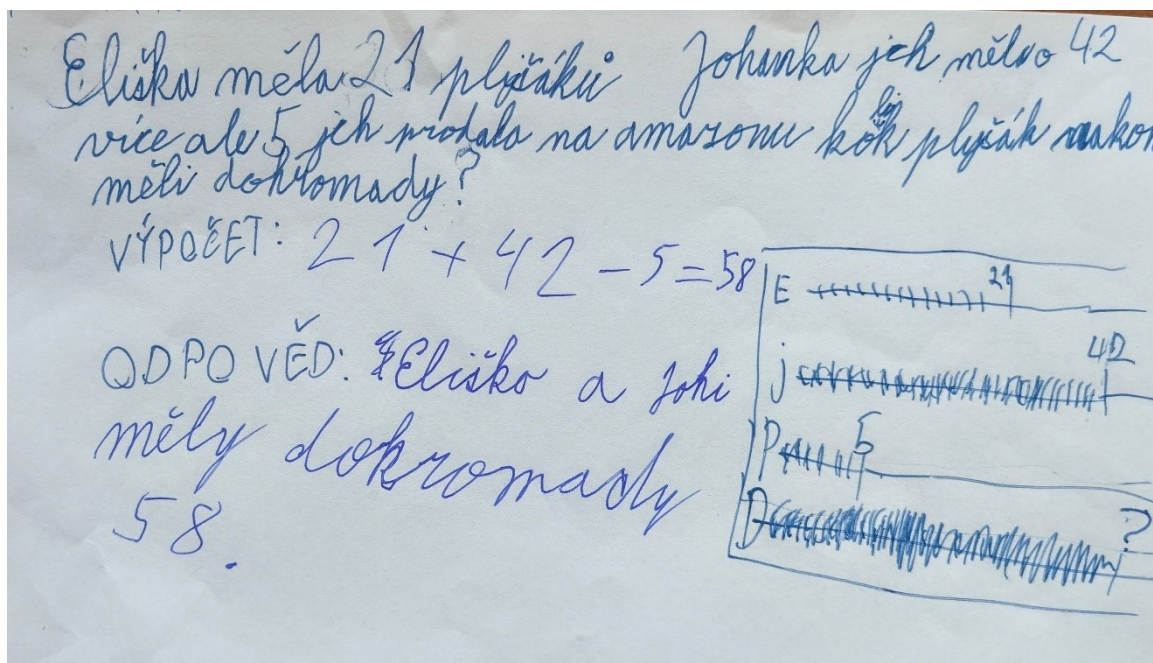 Eliška měla 21 plyšáků Johanka jch měla o 42
více ale 5 jch prodala na amazonu kolik plyšák nakon
měli dohromady?
VÝPOČET: 21 + 42 - 5 = 58
ODPOVĚD: Eliška a Johi
měly dokromady
58.
E 21
J 42
P 5
D ?